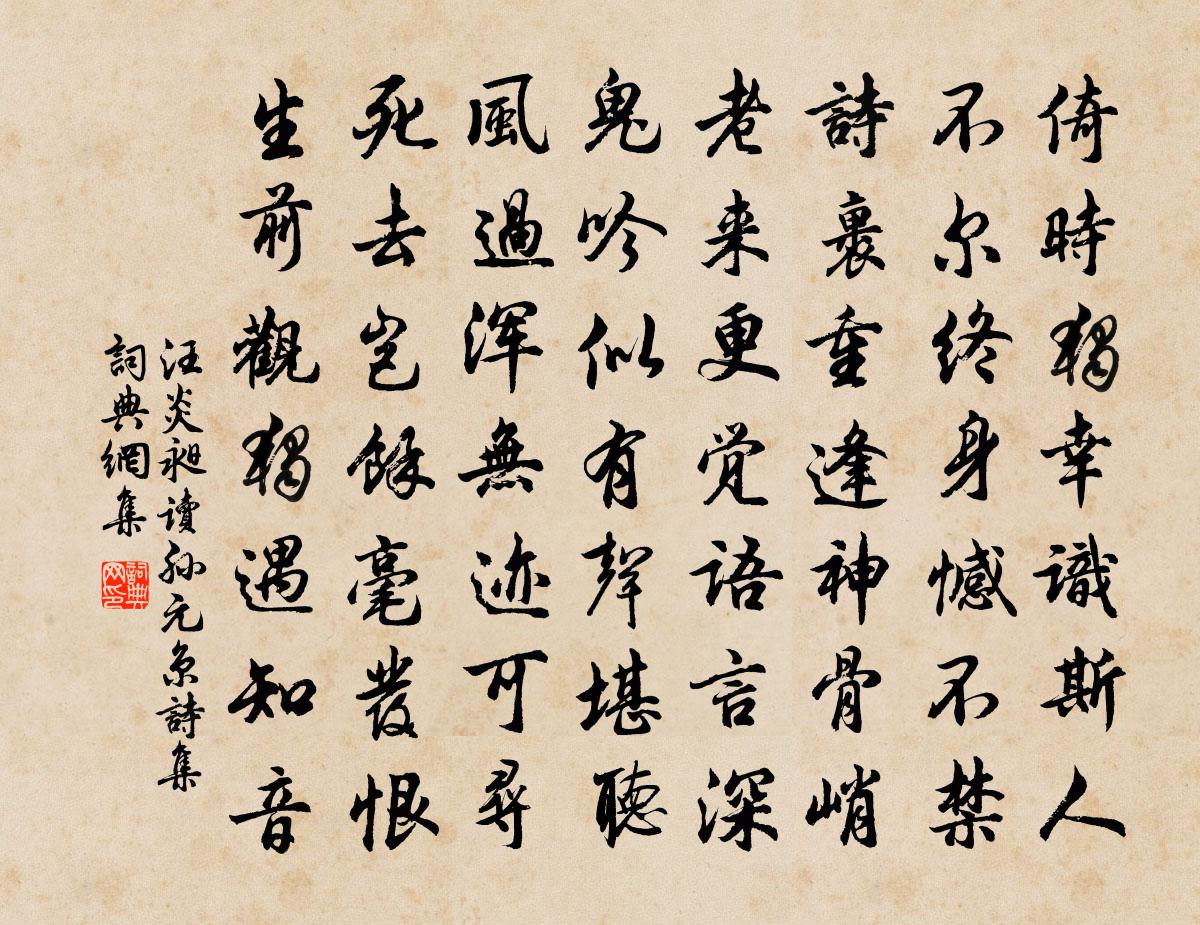 倚時獨幸識斯人
不尔終身憾不禁
詩裏重逢神骨峭
老来更覚語言深
鬼吟似有聲堪聽
風過渾無迹可尋
死去豈餘毫發恨
生前觀獨遇知音
汪炎昶讀孫元京詩集
詞典網集
詞典网印